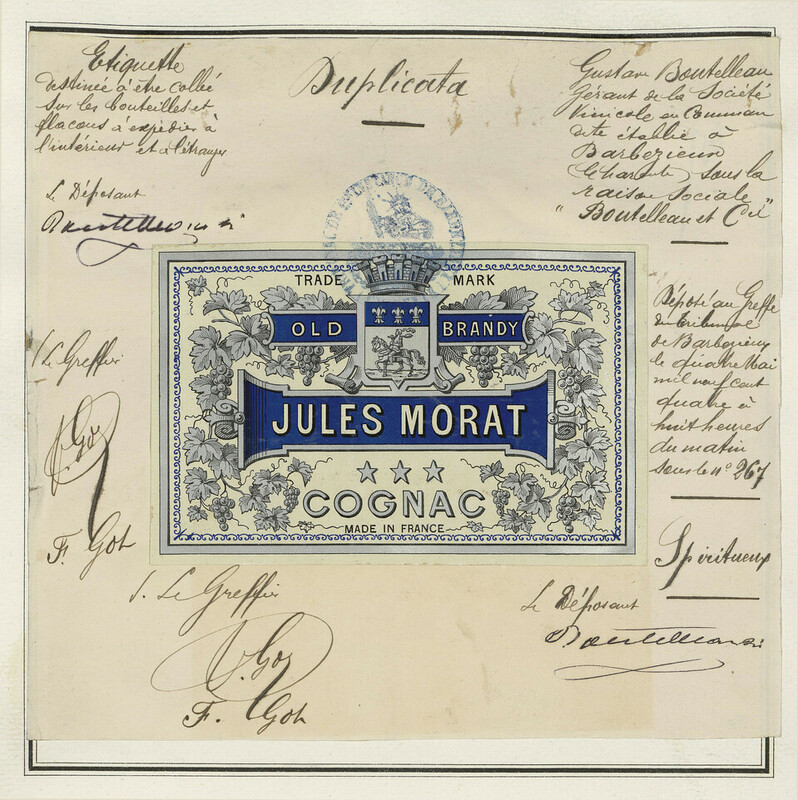 Etiquette
destinée à être collée
sur les bouteilles et
flacons à expédier à
l'intérieur et à l'étranger
Le Déposant
Duplicata
Gustave Boutelleau
Gérant de la Société
Vinicole en Comman
dite établie à
Barbezieux
Charente sous la
raison sociale
"Boutelleau et Cie"
TRADE MARK
OLD BRANDY
JULES MORAT
COGNAC
MADE IN FRANCE
Déposé au Greffe
du tribunal
de Barbezieux
le quatre Mai
mil neuf cent
quatre à
huit heures
du matin
sous le n° 267
Spiritueux
Le Greffier
F. Got
Le Greffier
F. Got
Le Déposant